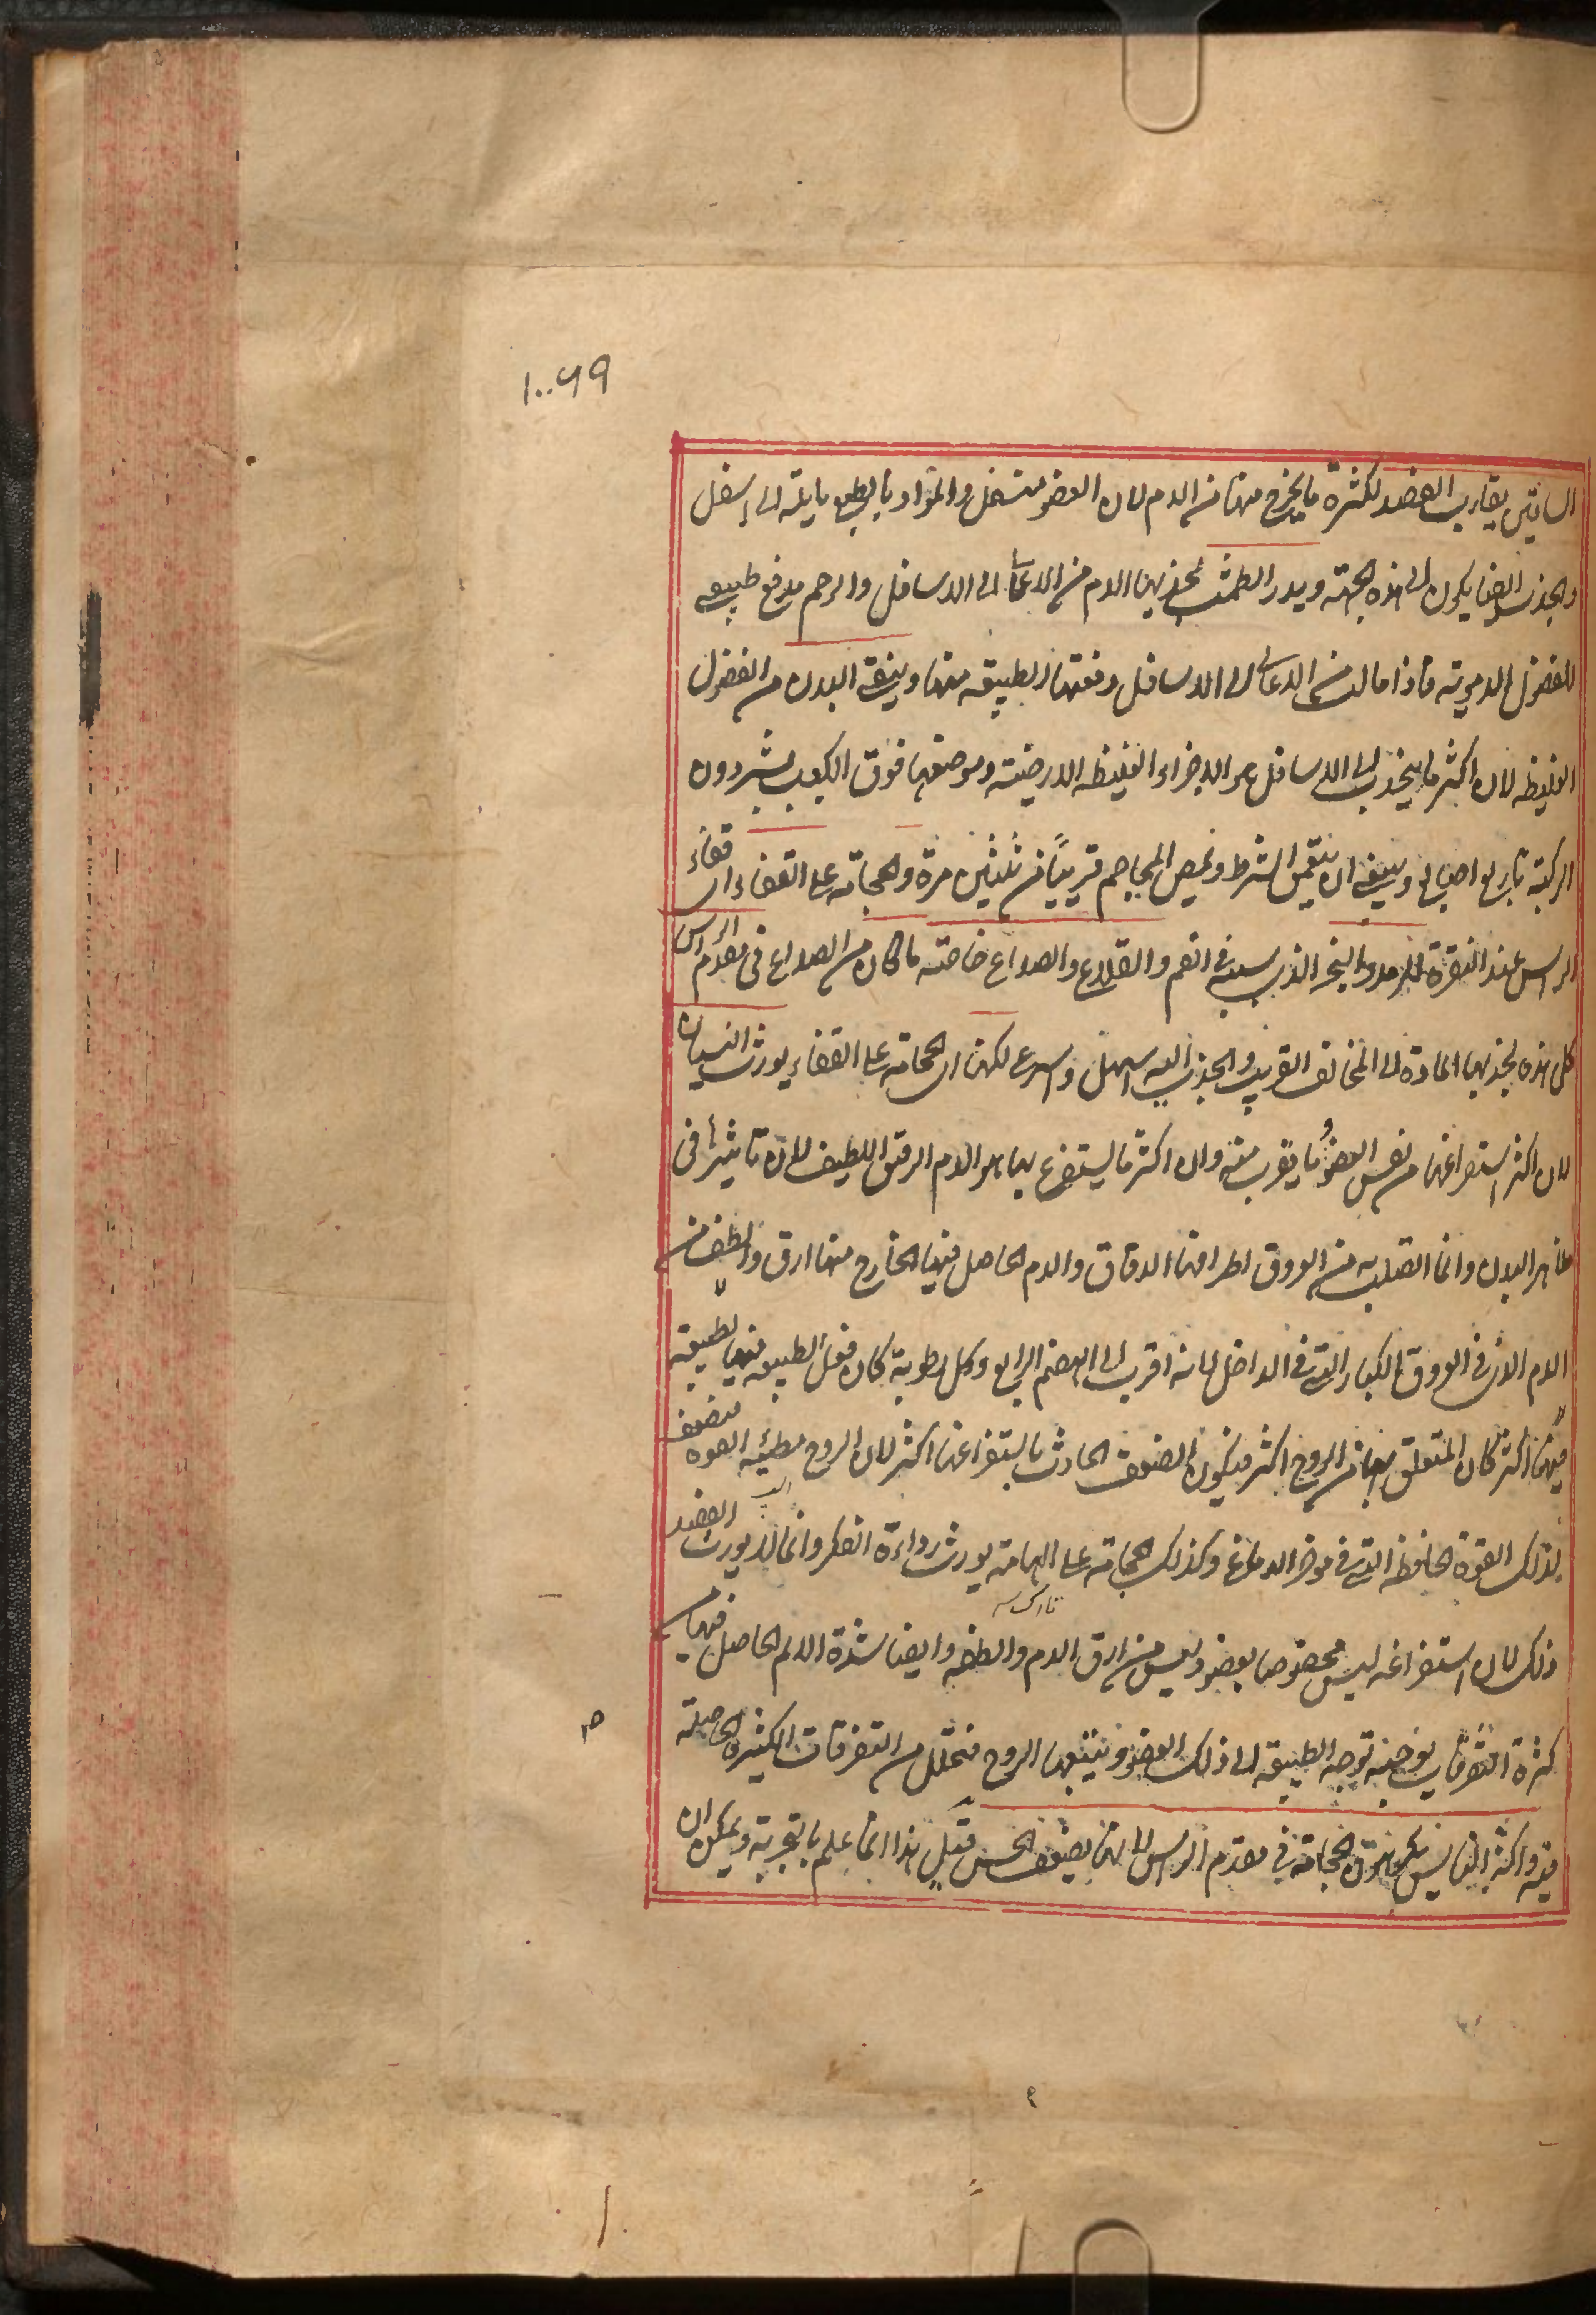 ١٠٠٦٩
الساقين يقارب الفصد لكثرة ما يخرج منها من الدم لان العضو متسفل والمواد بالطبع مايلة الى اسفل
والجذب ايضا يكون الى هذه الجهة ويدر الطمث لجذبها الدم من الاعالى الى الاسافل والرحم مدفع طبيعى
للفضول الدموية فاذا مالت من الاعالى الى الاسافل دفعتها الطبيعة منها وينقى البدن من الفضول
الغليظه لان اكثر ما ينجذب الى الاسافل هو الاجزاء الغليظه الارضية وموضعها فوق الكعب بشبر دون
الركبة باربع اصابع وينبغى ان يتعمق الشرط ويمص المحاجم قريبًا من ثلثين مرة والحجامة على القفاء اى قفاء
الراس عند النقرة للرمد والبخر الذى سببه فى الفم والقلاع والصداع خاصة ما كان من الصداع فى مقدم الراس
كل هذه لجذبها المادة الى المخالف القريب والجذب اليه اسهل واسرع لكن الحجامة على القفاء يورث النسيان
لان اكثر استفراغها من نفس العضو وما يقرب منه وان اكثر ما يستفرغ بها هو الدم الرقيق اللطيف لان تاثيرها فى
ظاهر البدن وانما اتصل به من العروق اطرافها الدقاق والدم الحاصل فيها الخارج منها ارق والطف من
الدم الذى فى العروق الكبار التى فى الداخل لانه اقرب الى الهضم الرابع وكل رطوبة كان فعل الطبيعه فيها
فيها اكثر كان المتعلق بها من الروح اكثر فيكون الضعف الحادث باستفراغها اكثر لان الروح مطية القوه فتضعف
لذلك القوة الحافظه التى فى موخر الدماغ وكذلك الحجامة على الهامة يورث رداءة الفكر وانما لا يورث الفصد
ذلك لان استفراغه ليس مخصوصا بعضو وليس من ارق الدم والطفه وايضا شدة الالم الحاصل فيها من
كثرة التفرقات يوجب توجه الطبيعه الى ذلك العضو ويتبعها الروح فتحلل من التفرقات الكثيرة الحاصلة
فيه واكثر الناس يكرهون الحجامة فى مقدم الراس لانها يضعف الحس قيل هذا انما علم بالتجربة ويمكن ان